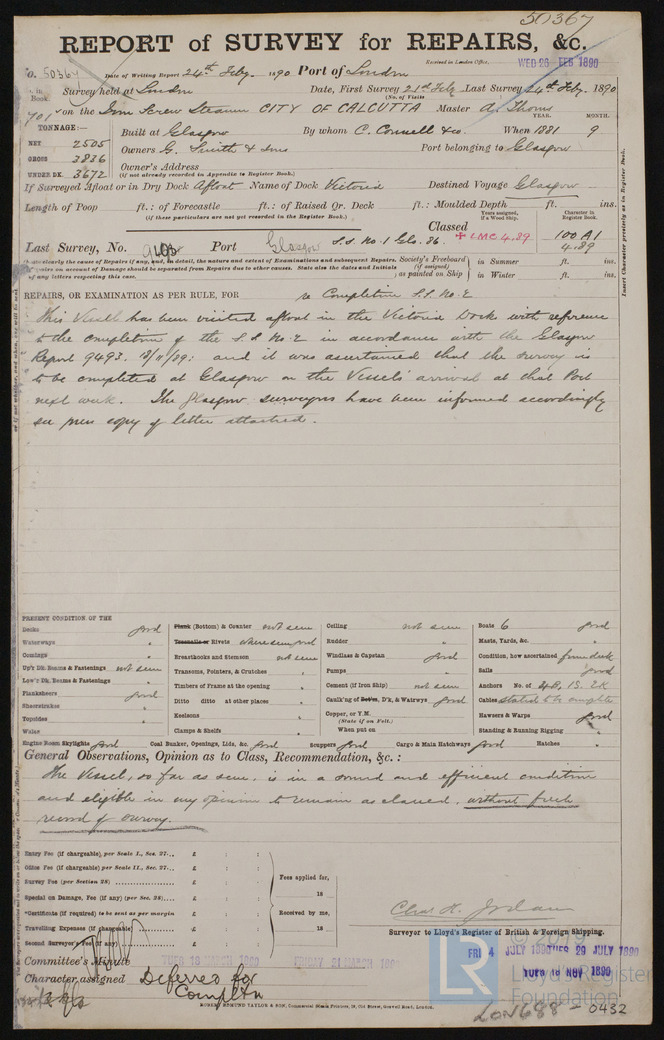 50367
REPORT of SURVEY for REPAIRS, &c.
No. 50367 Date of Writing Report 24th Feby. 1890 Port of London Received in London Office, WED 26 FEB 1890
No. in Book Survey held at London Date, First Survey 21st Feby Last Survey 24th Feby. 1890
(No. of Visits
701 on the Iron Screw Steamer CITY OF CALCUTTA Master A. Thoms
TONNAGE:— YEAR. MONTH.
NET 2505 Built at Glasgow By whom C. Connell & Co. When 1881 9
GROSS 3836 Owners G. Smith & Sons Port belonging to Glasgow
UNDER DK. 3672 Owner's Address
(if not already recorded in Appendix to Register Book.)
If Surveyed Afloat or in Dry Dock Afloat Name of Dock Victoria Destined Voyage Glasgow
Length of Poop ft.: of Forecastle ft.: of Raised Qr. Deck ft.: Moulded Depth ft. ins.
(if these particulars are not yet recorded in the Register Book.)
Years assigned, if a Wood Ship. Character in Register Book.
Classed + LMC 4.89 100 A1 4.89
Last Survey, No. Port Glasgow S.S. No. 1 Gls. 86.
Society's Freeboard (if assigned) as painted on Ship in Summer ft. ins.
in Winter ft. ins.
Insert Character precisely as in Register Book.
REPAIRS, OR EXAMINATION AS PER RULE, FOR re Completion S.S. No. 2
This Vessel has been visited afloat in the Victoria Dock with reference
to the completion of the S.S. No 2 in accordance with the Glasgow
Report 9493. 18/11/89: and it was ascertained that the survey is
to be completed at Glasgow on the Vessel's arrival at that Port
next week. The Glasgow surveyors have been informed accordingly
see press copy of letter attached.
PRESENT CONDITION OF THE
Decks good Plank (Bottom) & Counter not seen Ceiling not seen Boats 6 good
Waterways " Treenails or Rivets where seen good Rudder " Masts, Yards, &c. "
Comings " Breasthooks and Stemson not seen Windlass & Capstan good Condition, how ascertained from deck
Up'r Dk. Beams & Fastenings not seen Transoms, Pointers, & Crutches " Pumps " Sails good
Low'r Dk. Beams & Fastenings " Timbers of Frame at the opening " Cement (if Iron Ship) not seen Anchors No. of 4B, 1S, 2K
Planksheers good Ditto ditto at other places " Caulk'g of Bot'm, D'k, & Watrways good Cables stated to be complete
Sheerstrakes " Keelsons " Copper, or Y.M. (State if on Felt.) Hawsers & Warps good
Topsides " Clamps & Shelfs " When put on Standing & Running Rigging "
Wales "
Engine Room Skylights good Coal Bunker, Openings, Lids, &c. good Scuppers good Cargo & Main Hatchways good Hatches "
General Observations, Opinion as to Class, Recommendation, &c. :
The Vessel, so far as seen, is in a sound and efficient condition
and eligible in my opinion to remain as classed, without fresh
record of survey.
Entry Fee (if chargeable), per Scale I., Sec. 27... £ : :
Office Fee (if chargeable) per Scale II., Sec. 27... £ : :
Survey Fee (per Section 28) £ : :
Special on Damage, Fee (if any) (per Sec. 28).... £ : :
*Certificate (if required) to be sent as per margin £ : :
Travelling Expenses (if chargeable) £ : :
Second Surveyor's Fee (if any) £ : :
Fees applied for,
18
Received by me,
18
Chas. H. Jordan
Surveyor to Lloyd's Register of British & Foreign Shipping.
Committee's Minute TUES 18 MARCH 1890 FRIDAY 21 MARCH 1890 FRI 4 JULY 1890 TUES 29 JULY 1890
TUES 18 NOV 1890
Character assigned Deferred for
Compltn
ROBERT EDMUND TAYLOR & SON, Commercial Steam Printers, 19, Old Street, Goswell Road, London.
LR
Lloyd's Register
Foundation
LON688 - 0432